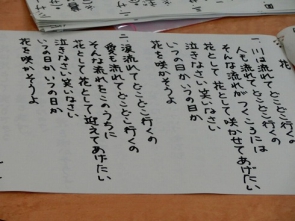 花
一 川は流れてどこどこ行くの
人も流れてどこどこ行くの
そんな流れがつくころには
花として花として咲かせてあげたい
泣きなさい笑いなさい
いつの日かいつの日か
花を咲かそうよ
二 涙流れてどこどこ行くの
愛も流れてどこどこ行くの
そんな流れをこのうちに
花として花として迎えてあげたい
泣きなさい笑いなさい
いつの日かいつの日か
花を咲かそうよ